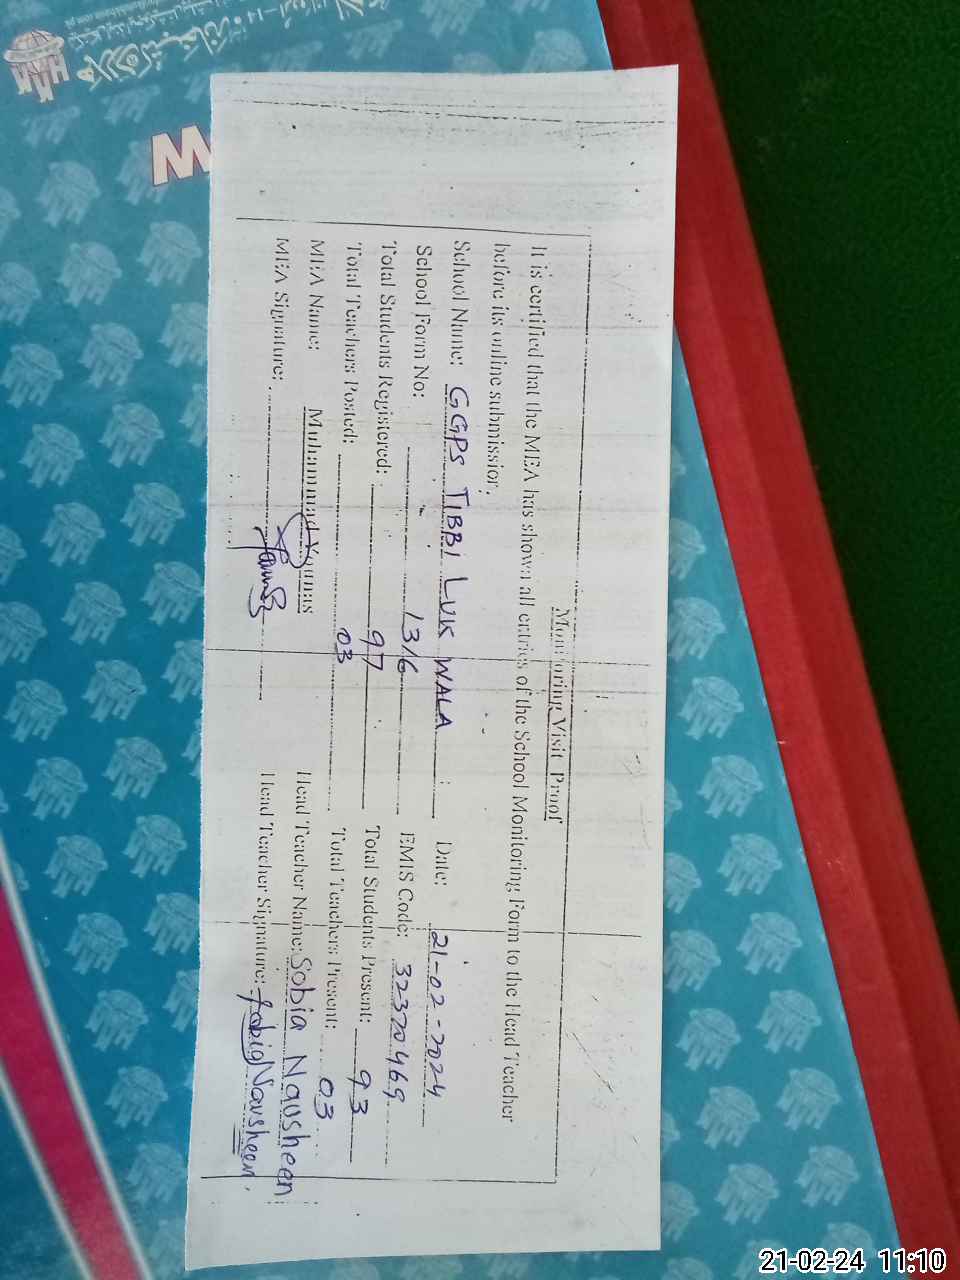 Monitoring Visit Proof
It is certified that the MEA has shown all entries of the School Monitoring Form to the Head Teacher
before its online submission.
School Name: GGPS TIBBI LUK WALA Date: 21-02-2024
School Form No: 1316 EMIS Code: 32320469
Total Students Registered: 97 Total Students Present: 93
Total Teachers Posted: 03 Total Teachers Present: 03
MEA Name: Muhammad Younas Head Teacher Name: Sobia Nausheen
MEA Signature: Head Teacher Signature: Sobia Nausheen
W
21-02-24 11:10